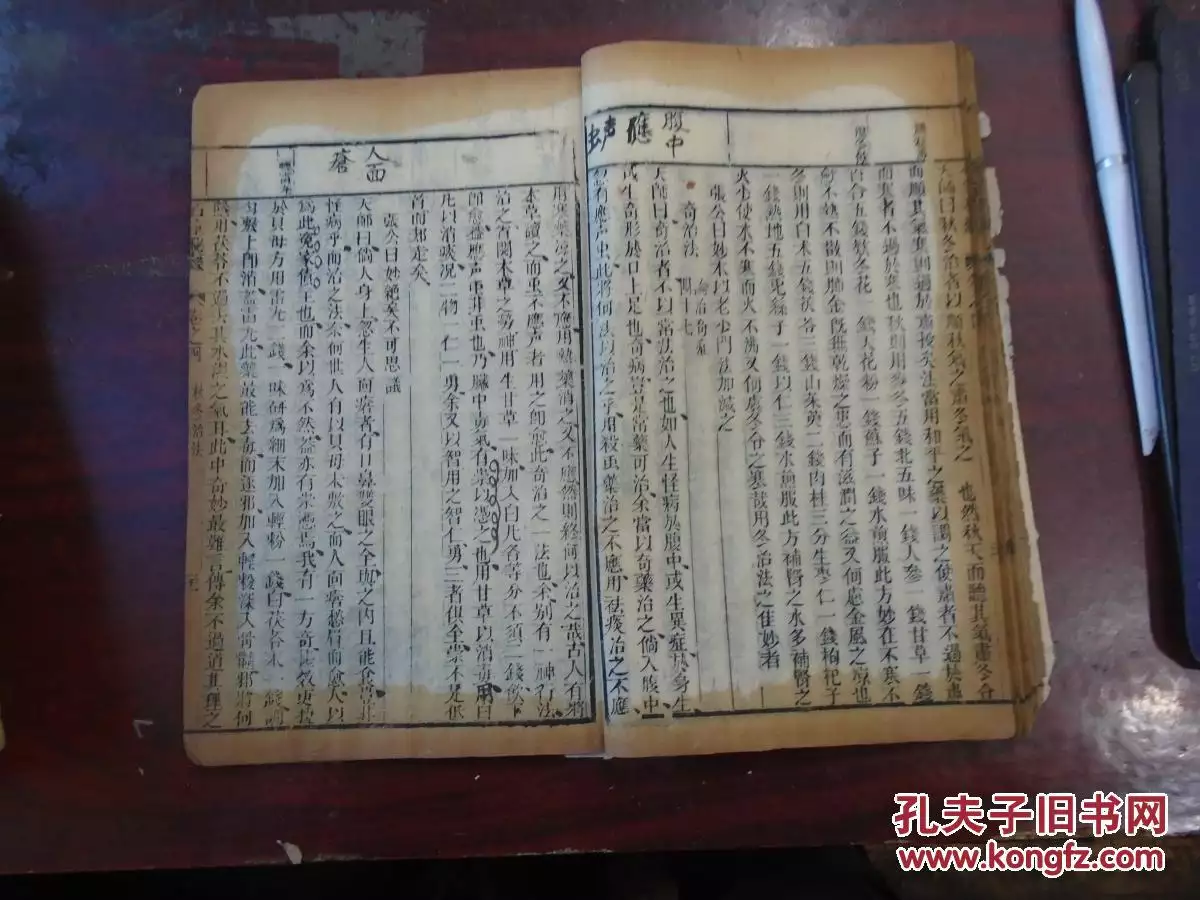 腹中
應
声
虫
天師曰秋冬治者以順秋氣之肅冬氣之 也然秋天而聽其氣肅冬分
而順其氣寒則過於肅殺矣法當用和平之藥以調之使肅者不過於肅
而寒者不過於寒也秋則用麥冬五錢北五味一錢人參一錢甘草一錢
百合五錢欵冬花一錢天花粉一錢蘇子一錢水煎服此方妙在不寒不
不熱不散則肺金既無乾燥之患而有滋潤之益又何慮金風之凉也
冬則用白朮五錢茯苓三錢山茱萸二錢肉桂三分生棗仁一錢枸杞子
一錢熟地五錢兔絲子一錢以仁三錢水煎服此方補腎之水多補腎之
火少使水不寒而火不沸又何慮冬分之寒哉用冬治法之佳妙者
張公曰妙朮以老少門法加減之
奇治法 論治奇症
天師曰奇治者不以常法治之也如人生怪病於腹中或生異症於身生
或生奇形於口上是也奇病豈是常藥可治余當以奇藥治之倘人腹中
忽有應声虫此將何法以治之乎用殺虫藥治之不應用祛痰治之不應
人面
瘡
用寒藥凉之又不應用熱藥消之又不應然則終何以治之哉古人有將
本草讀之而虫不應声者用之即愈此奇治之一法也余別有一神竒法
治之省閱本草之勞神用生甘草一味加入白凡各等分不須二錢飲下
即愈蓋應声虫非虫也乃臟中毒氣有祟以憑之也用甘草以消毒用白
凡以消痰況二物一仁一勇余又以智用之智仁勇三者俱全祟不足依
首而却走矣
張公曰妙絕矣不可思議
天師曰倘人身上忽生人面瘡者有口鼻雙眼之全與之肉且能食豈非
怪病乎而治之法奈何世人有以貝母末敷之而人面瘡愁眉而愈人以
爲此冤家債主也而余以爲不然蓋亦有祟憑焉我有一方奇甚
於貝母方用雷丸三錢一味研爲細末加入輕粉一錢白茯苓末一錢調
勻敷上即消蓋雷丸此藥最能去毒而逐邪加入輕粉深入骨髓邪將何
隱用茯苓不過去其水濕之氣耳此中奇妙最難言傳余不過道其理之
石室秘籙 秋冬治法
孔夫子旧书网
www.kongfz.com